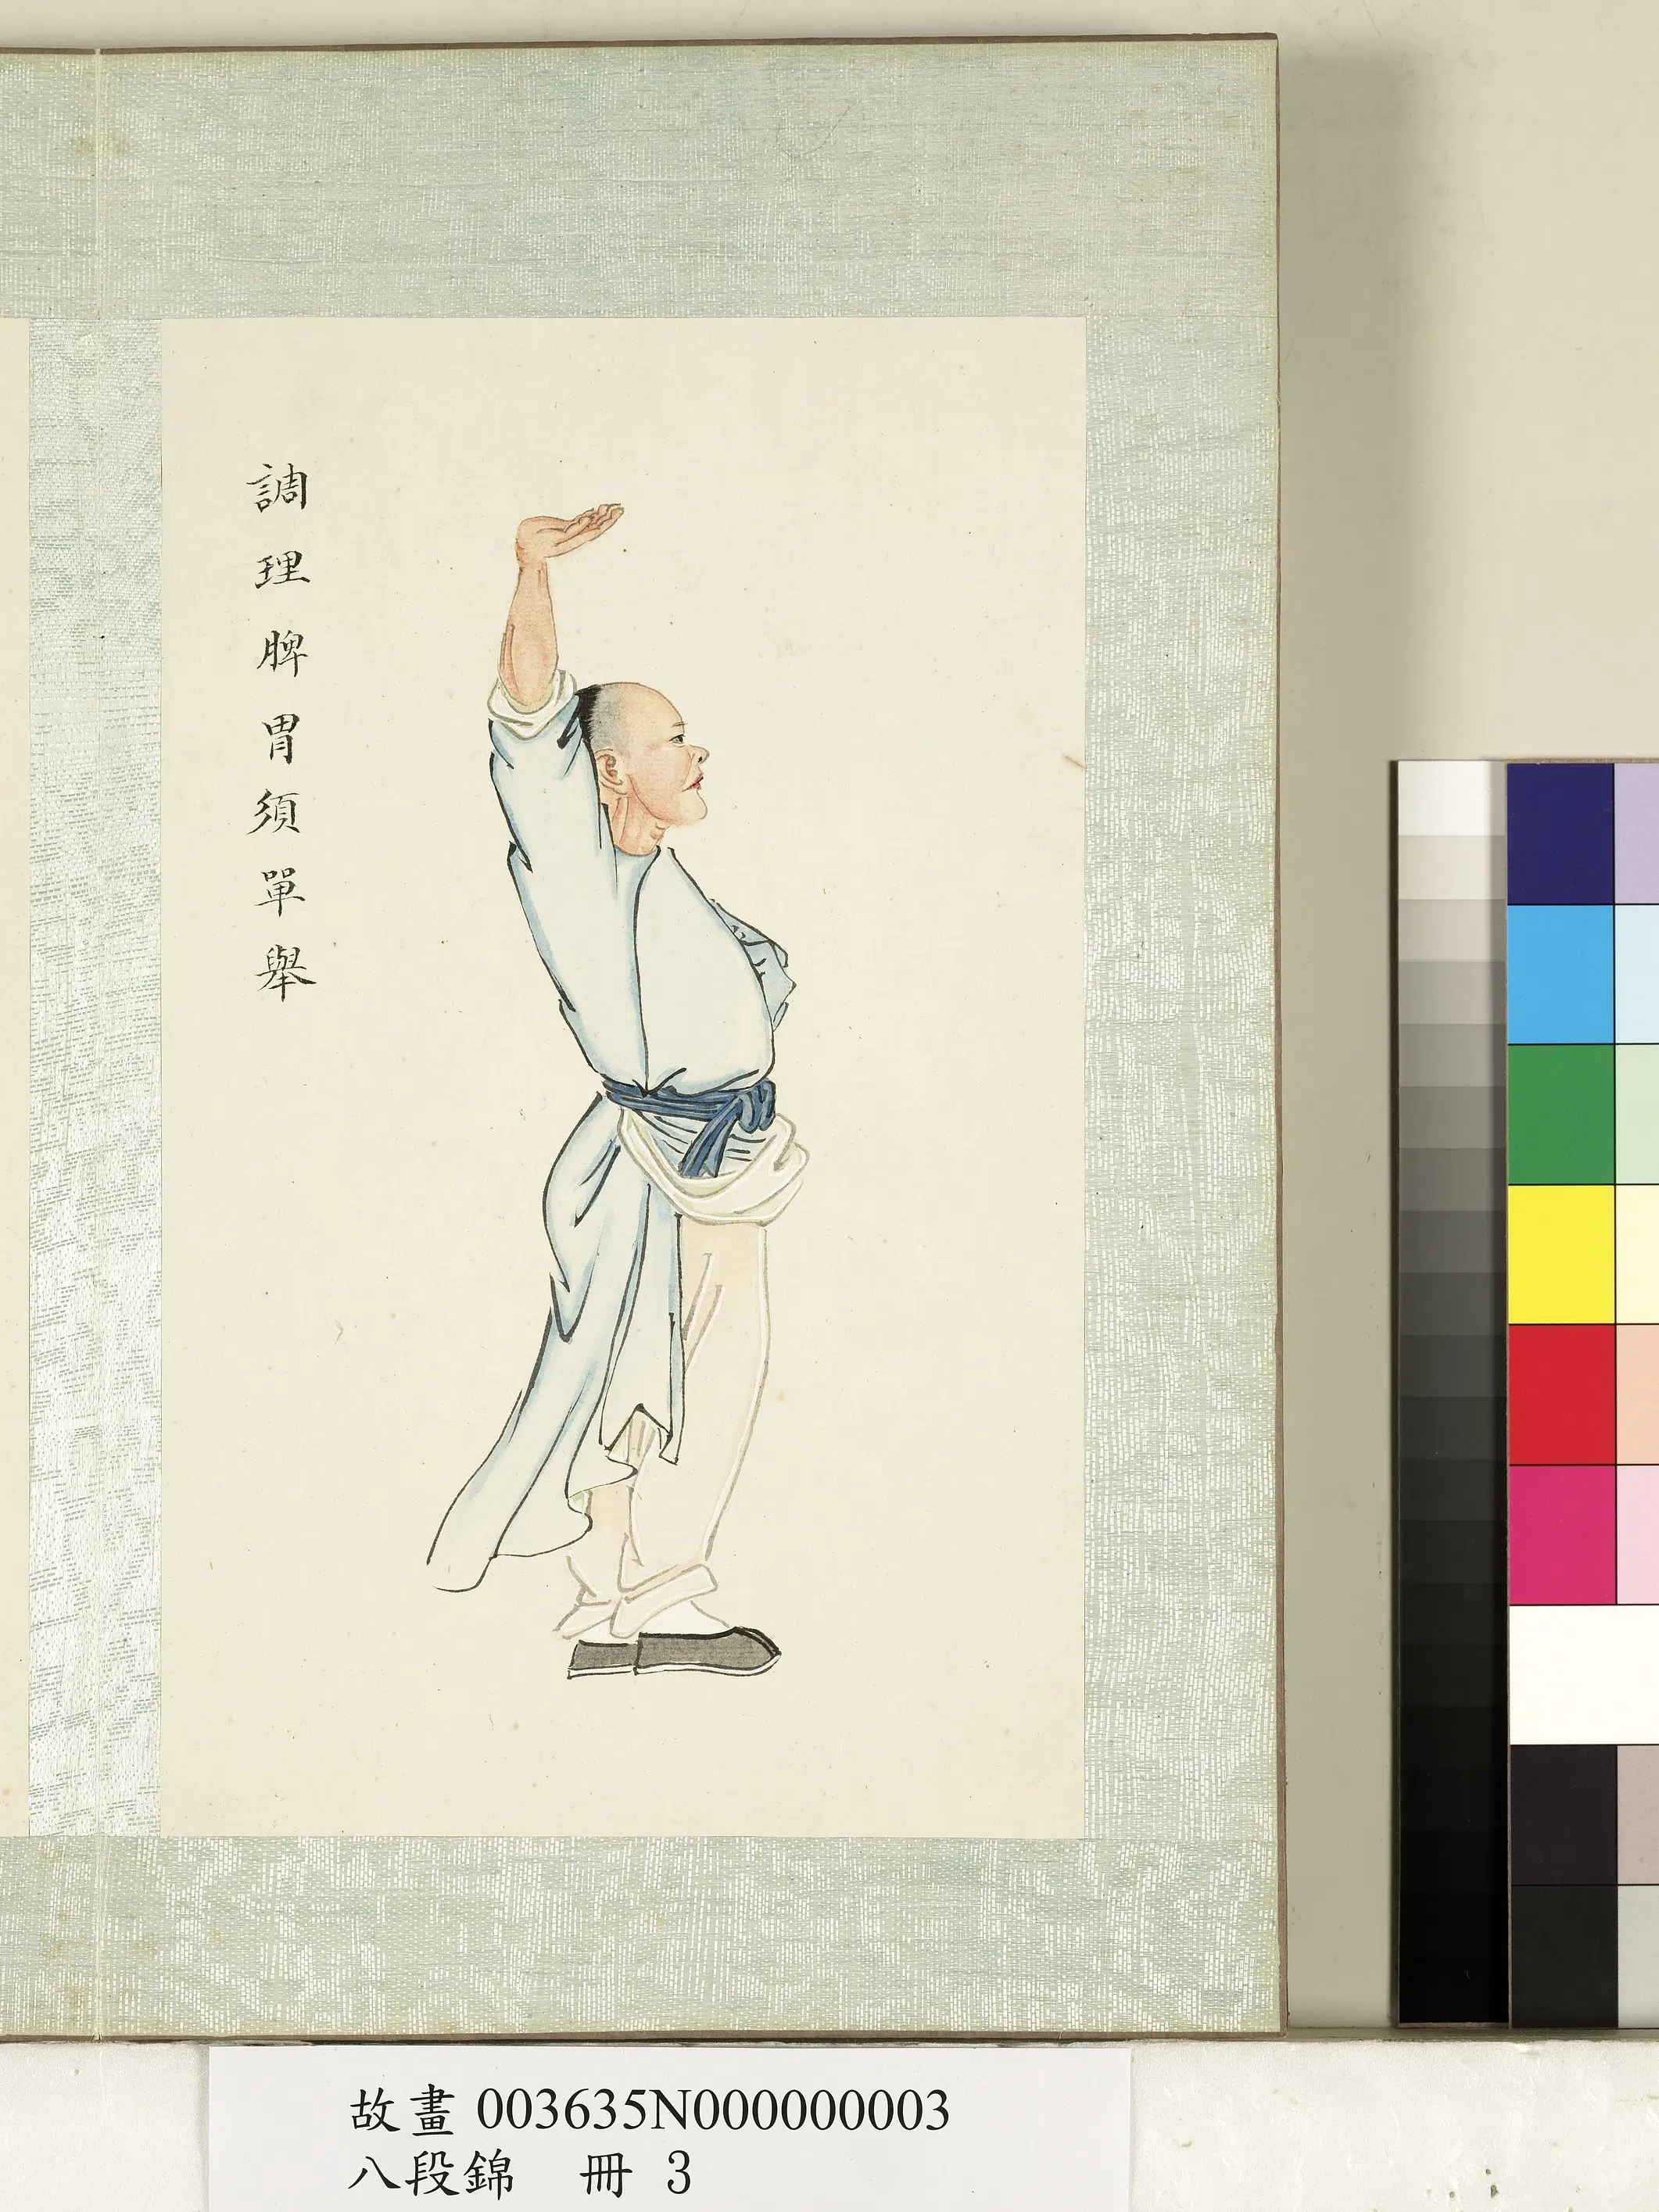 調理脾胃須單舉
故畫 003635N000000003
八段錦 冊 3